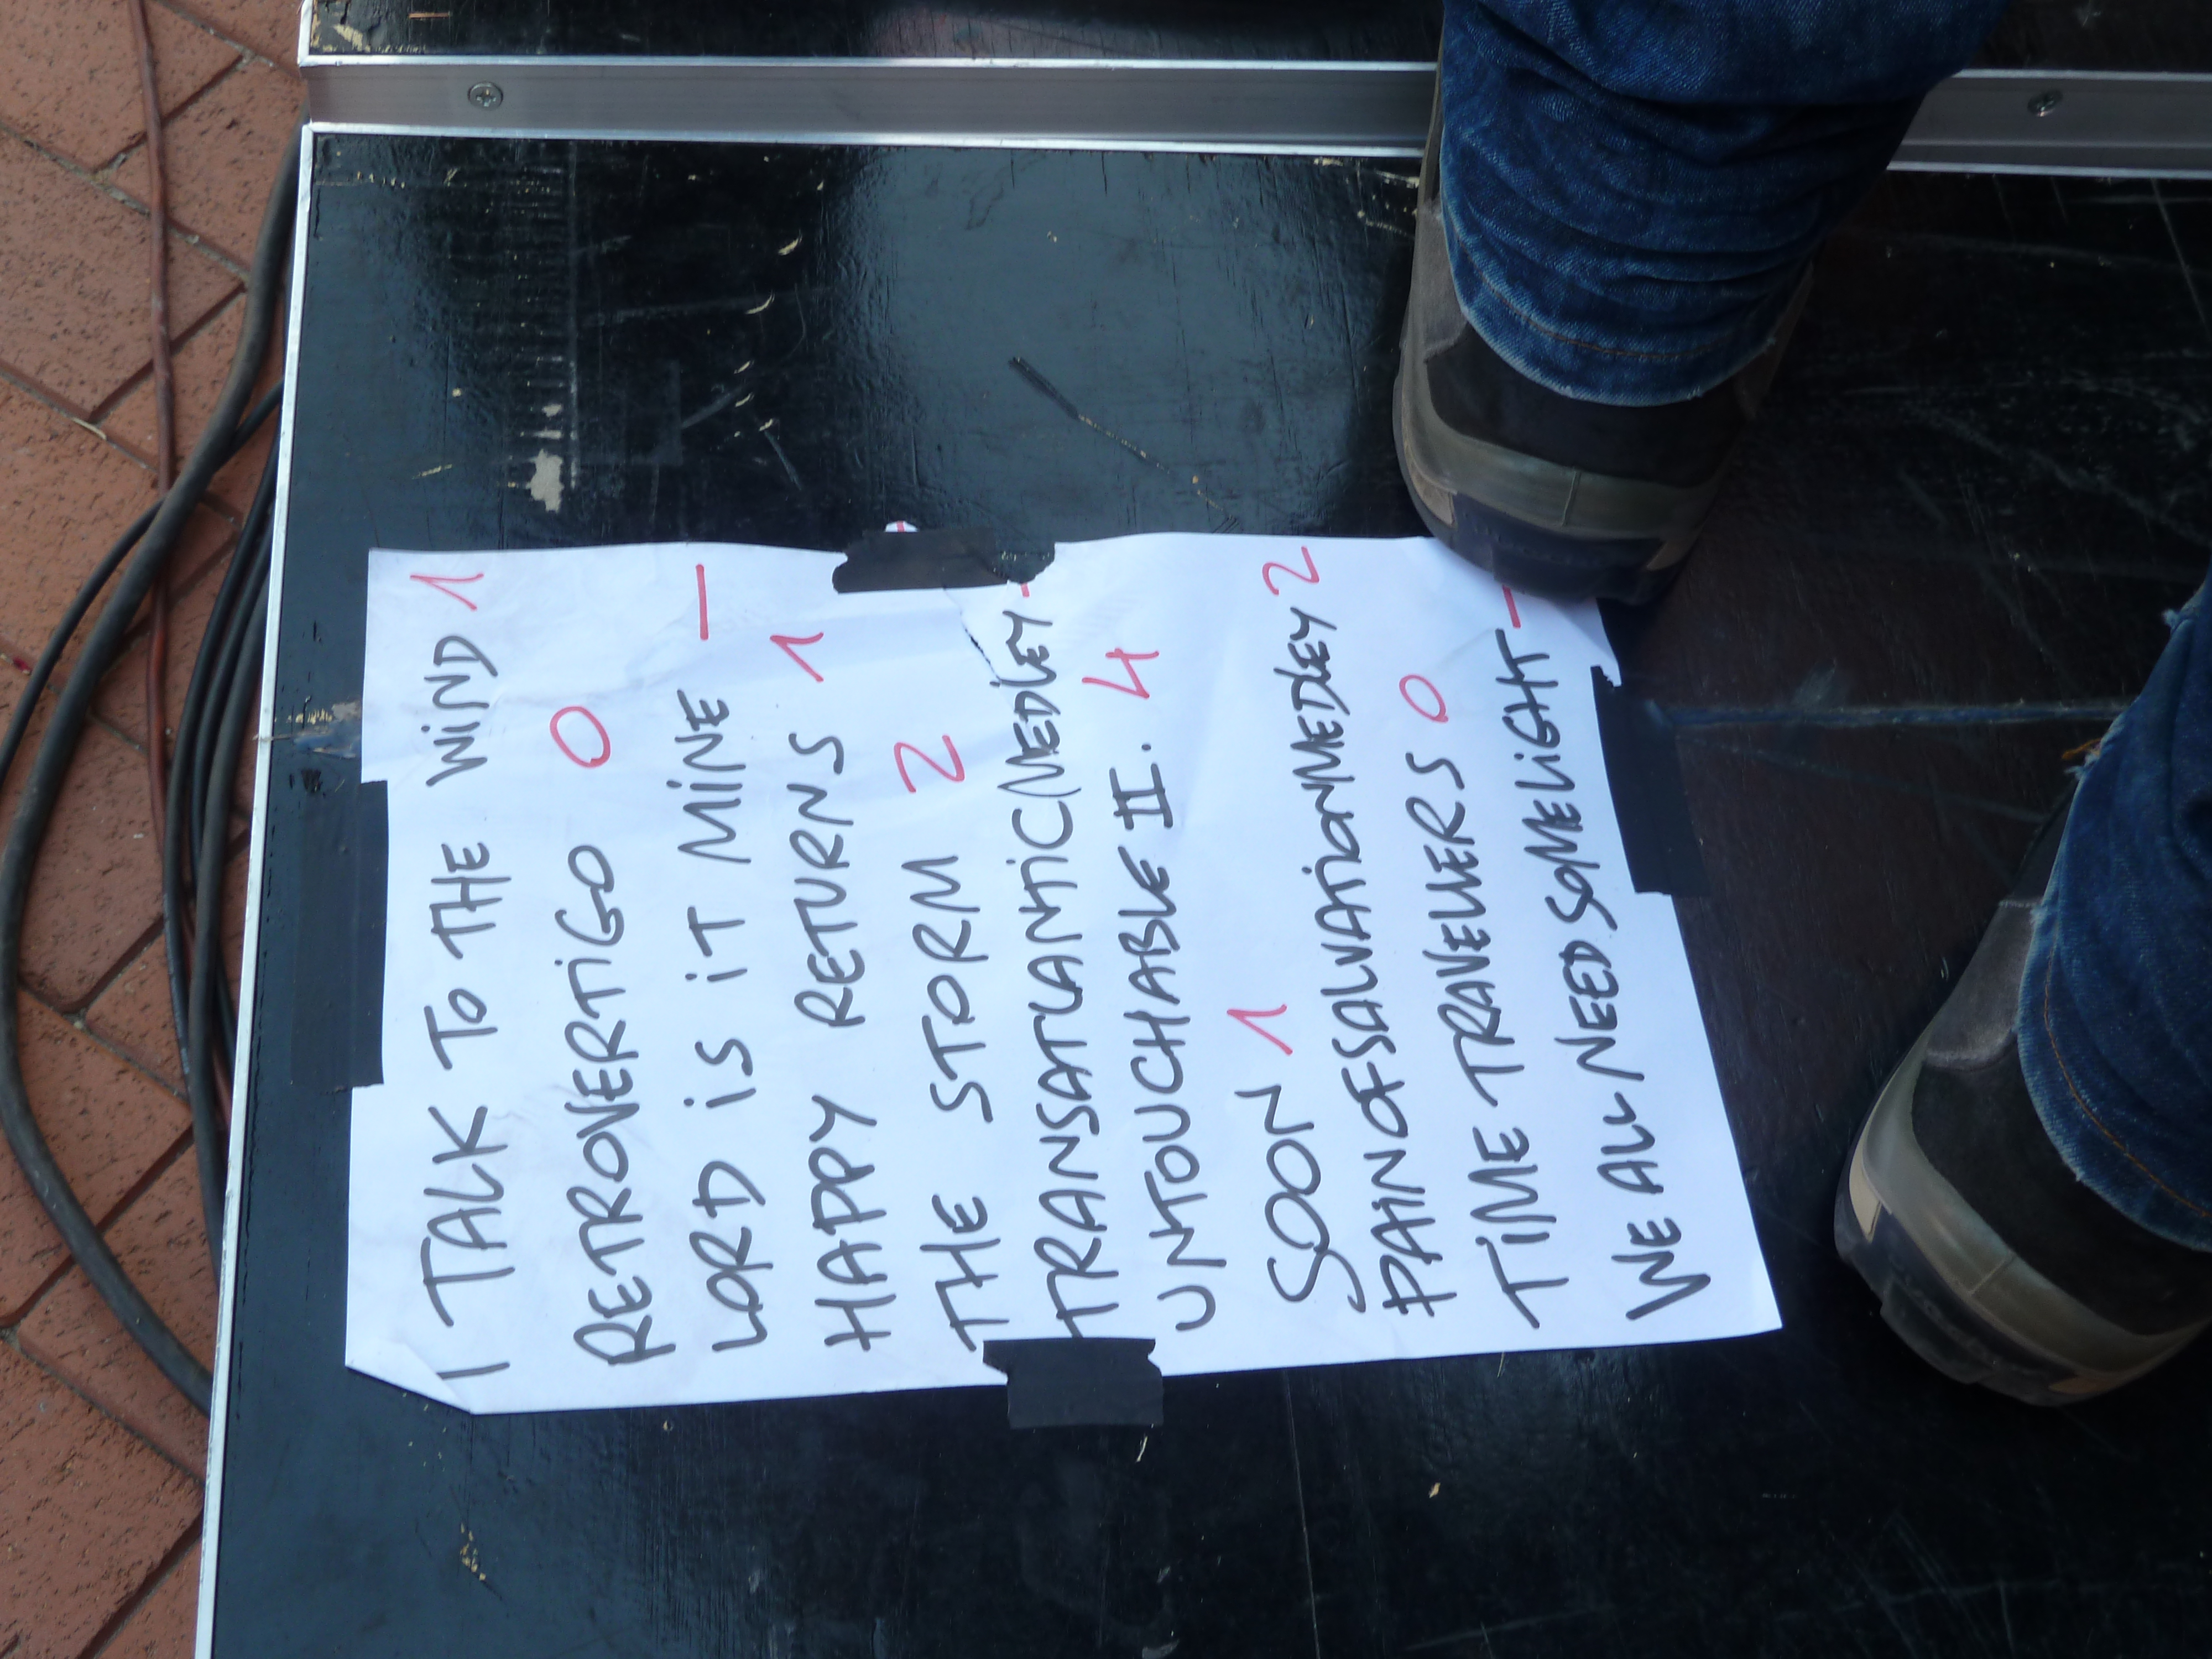 I TALK TO THE WIND 1
RETROVERTIGO 0
LORD IS IT MINE –
HAPPY RETURNS 1
THE STORM 2
TRANSATLANTIC MEDLEY -
UNTOUCHABLE II. 4
SOON 1
PAIN OF SALVATION MEDLEY 2
TIME TRAVELLERS 0
WE ALL NEED SOME LIGHT –